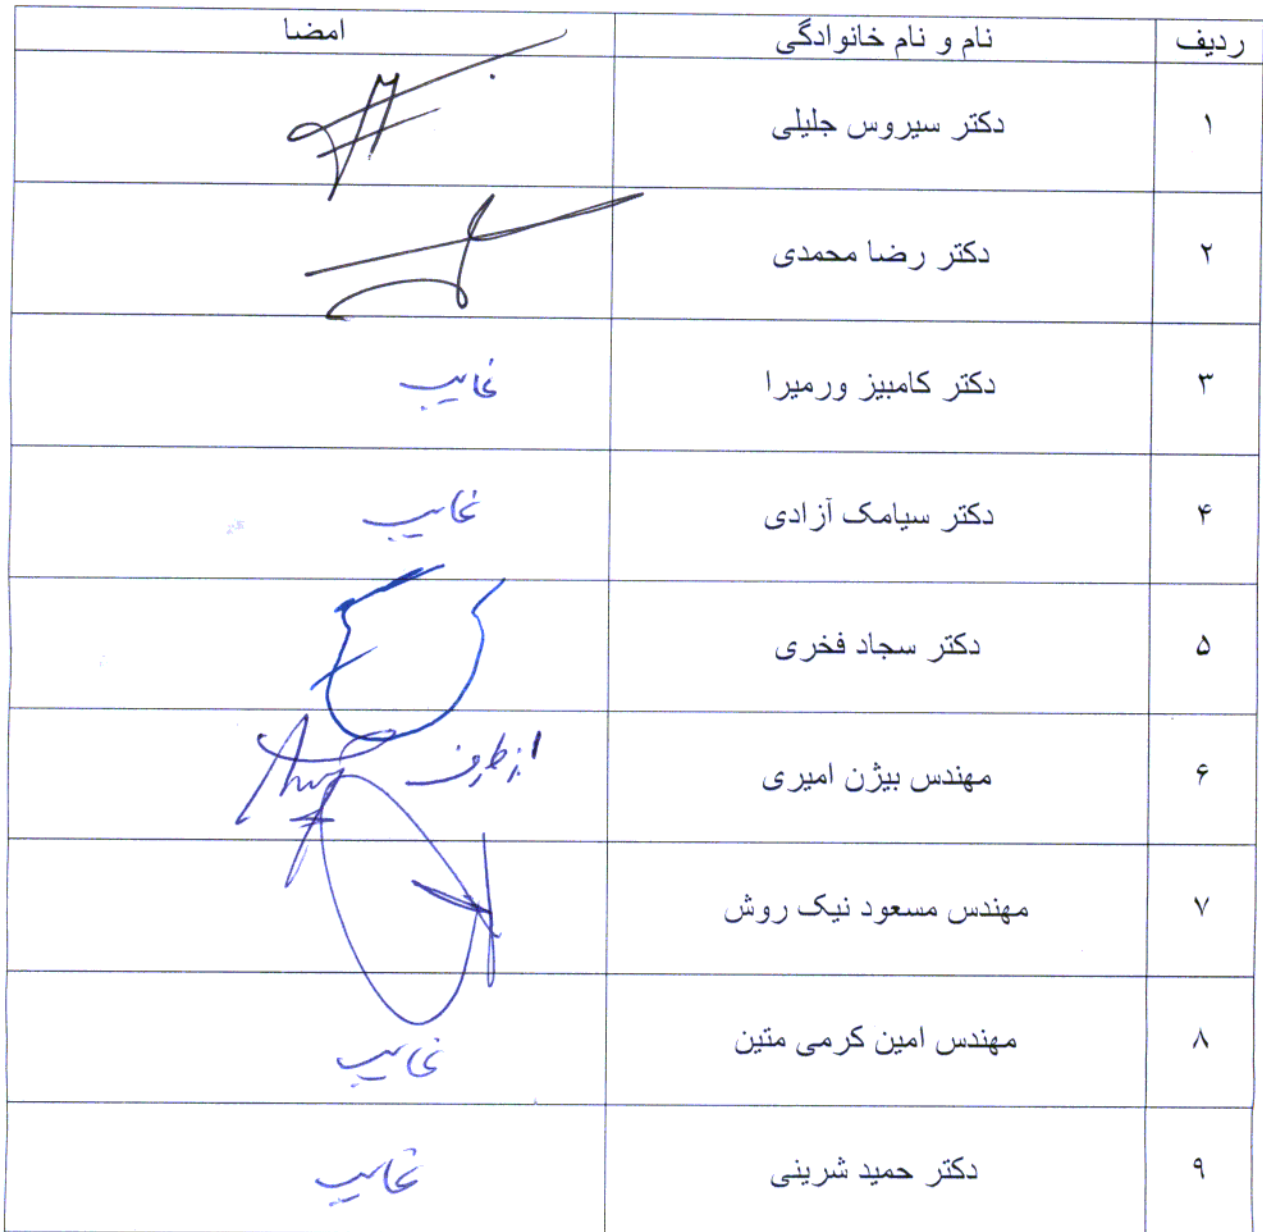 ردیف نام و نام خانوادگی امضا
۱ دکتر سیروس جلیلی
۲ دکتر رضا محمدی
۳ دکتر کامبیز ورمیرا غایب
۴ دکتر سیامک آزادی غایب
۵ دکتر سجاد فخری
۶ مهندس بیژن امیری از طرف
۷ مهندس مسعود نیک روش
۸ مهندس امین کرمی متین غایب
۹ دکتر حمید شرینی غایب